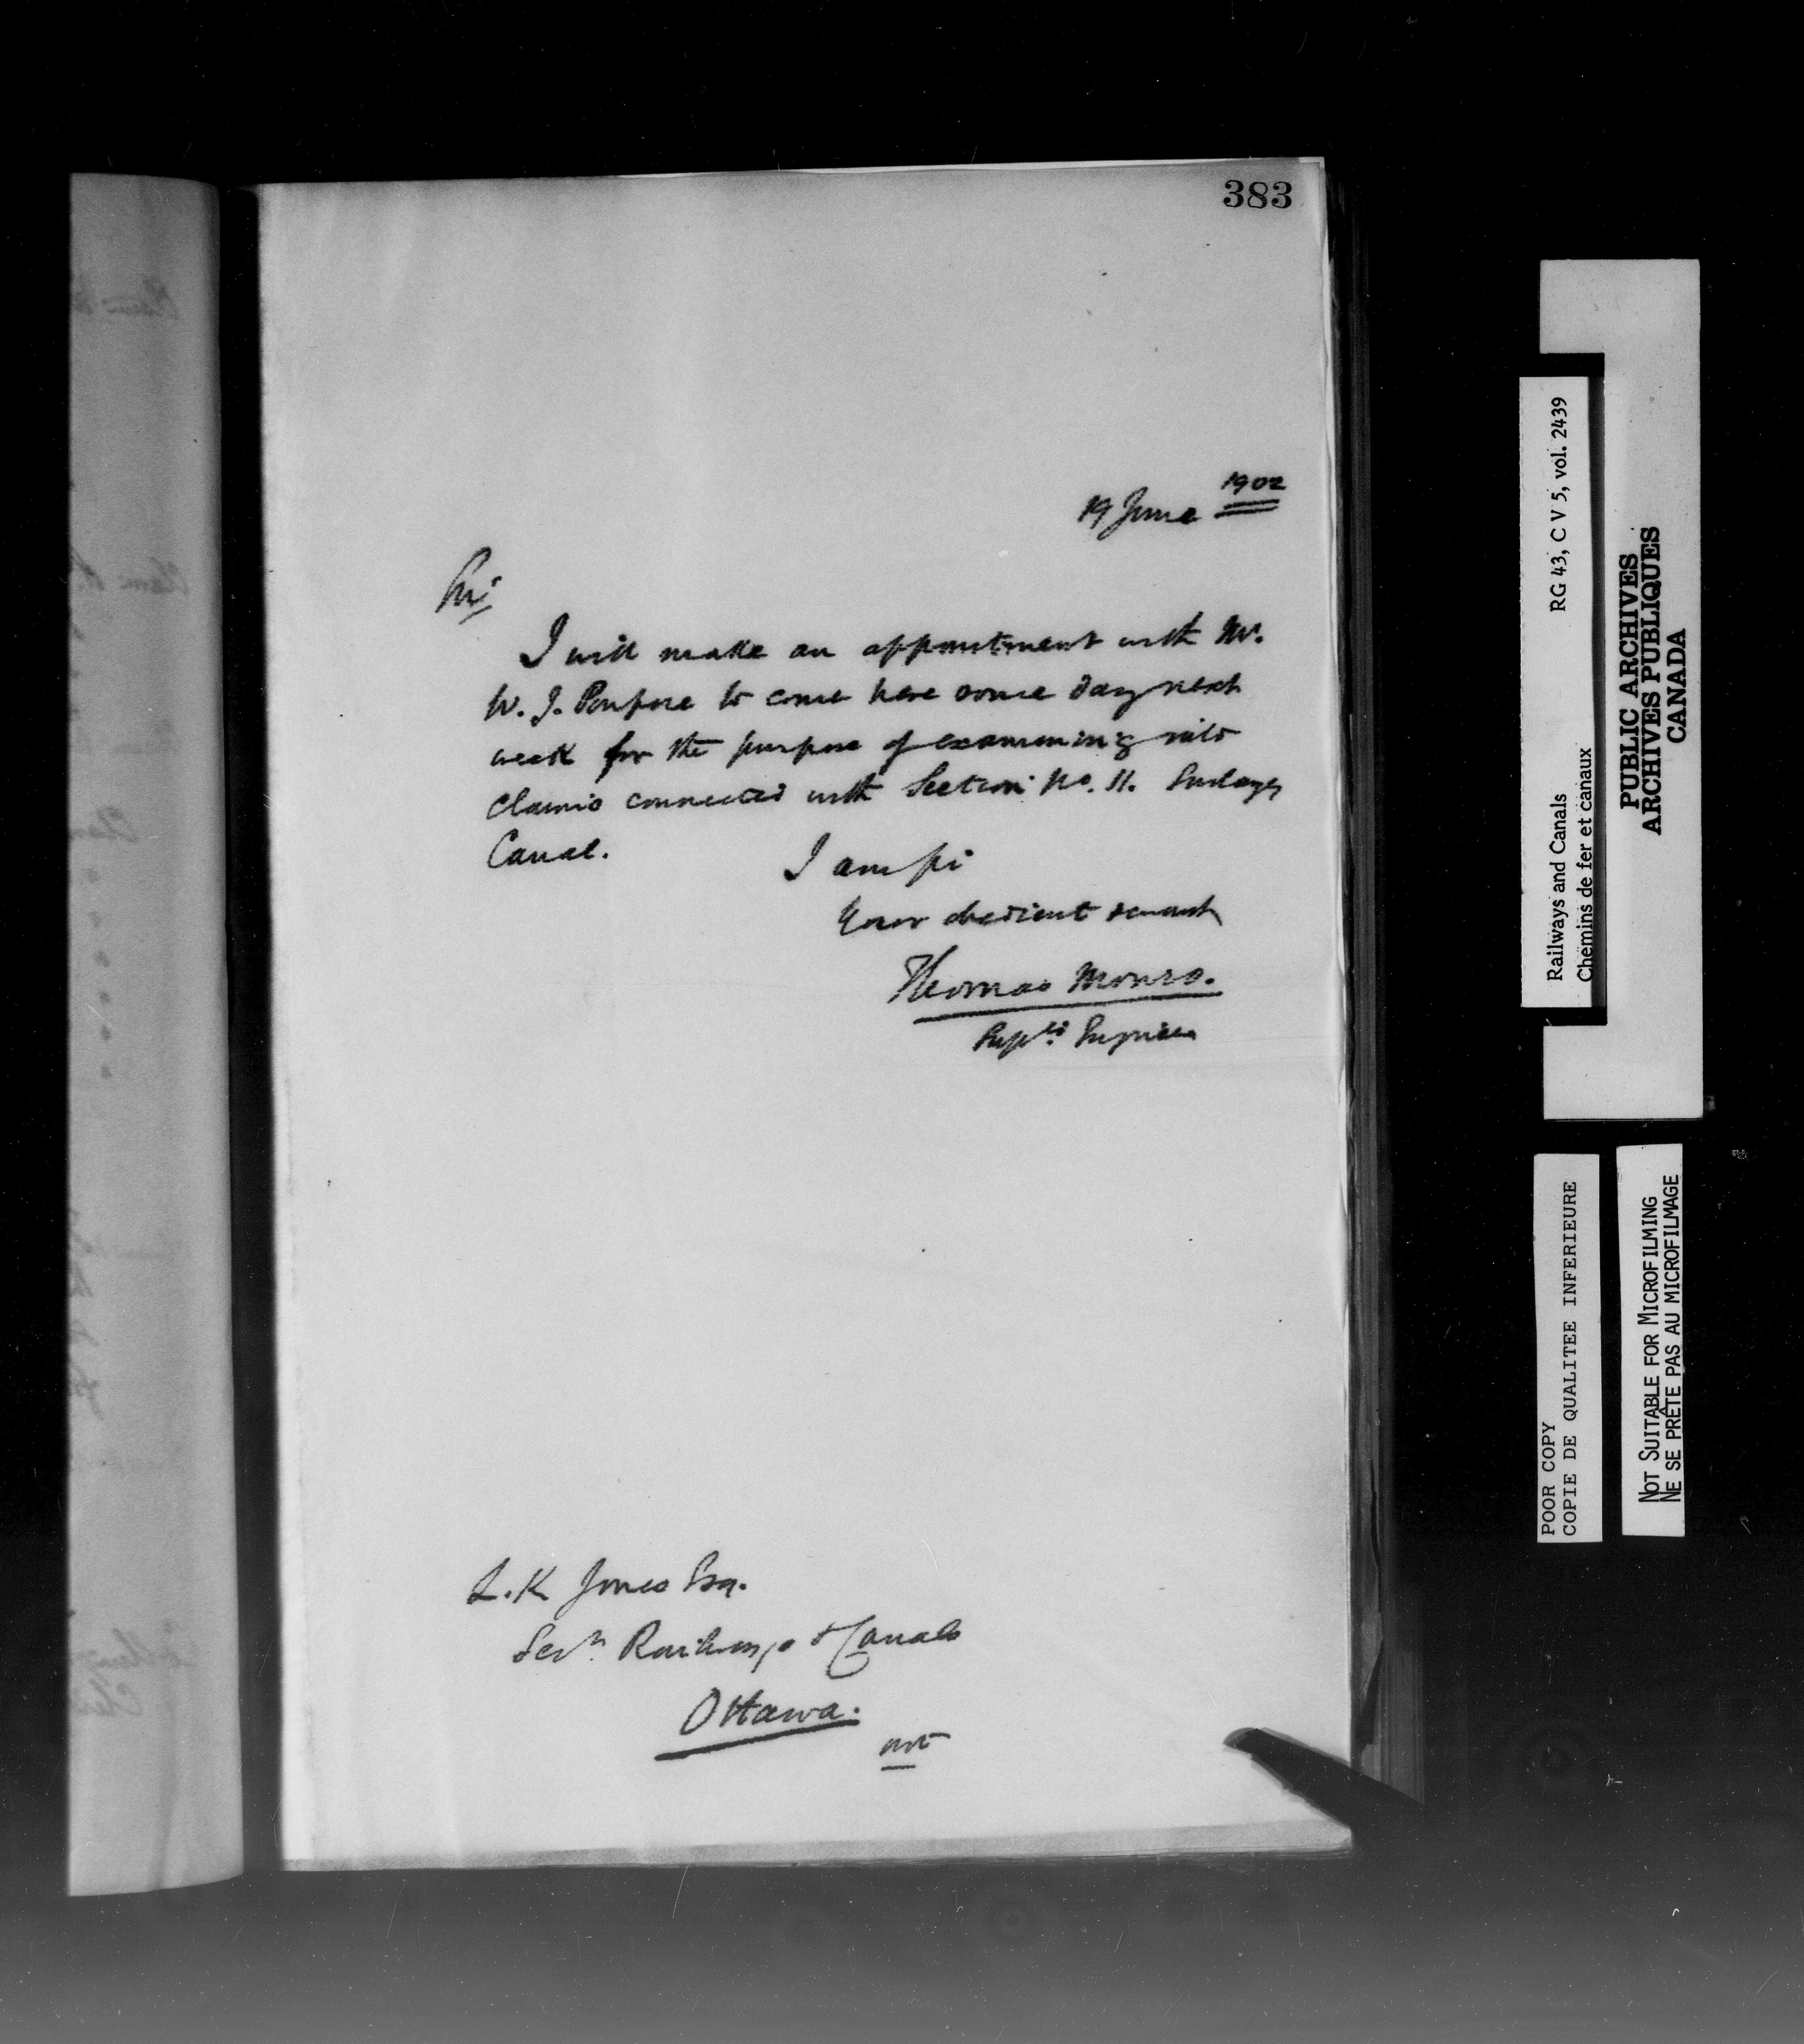 383
19 June 1902
Sir
I will make an appointment with Mr.
W. J. Poupore to come here some day next
week for the purpose of examining into
claims connected with Section No. 11. Soulanges
Canal.
I am Sir
Your obedient servant
Thomas Monro.
Engineer
L. K Jones Esq.
Secy. Railways & Canals
Ottawa.
Railways and Canals RG 43, C V 5, vol. 2439
Chemins de fer et canaux
PUBLIC ARCHIVES
ARCHIVES PUBLIQUES
CANADA
POOR COPY
COPIE DE QUALITEE INFERIEURE
NOT SUITABLE FOR MICROFILMING
NE SE PRÊTE PAS AU MICROFILMAGE